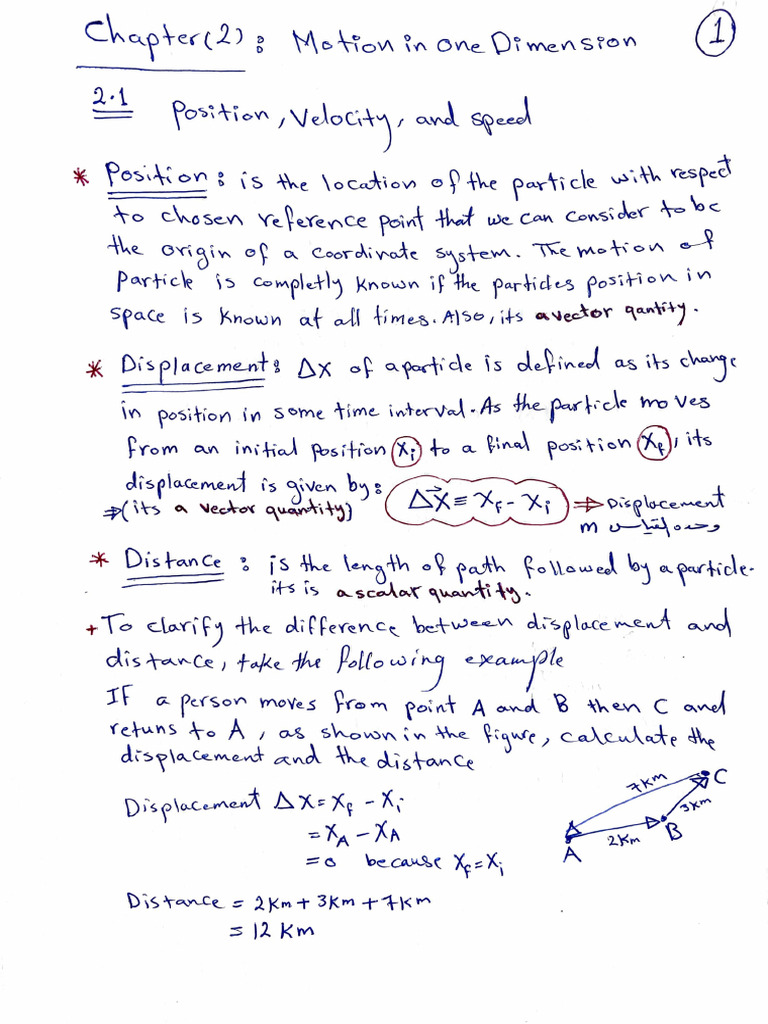 Chapter(2): Motion in one Dimension
1
2.1 Position, Velocity, and speed
* Position: is the location of the particle with respect
to chosen reference point that we can consider to be
the origin of a coordinate system. The motion of
Particle is completly known if the particles position in
space is known at all times. Also, its a vector qantity.
* Displacement: Δx of a particle is defined as its change
in position in some time interval. As the particle moves
from an initial position xi to a final position xf, its
displacement is given by: Δx⃗ ≡ xf - xi ⇒ Displacement
⇒(its a vector quantity)
وحده القياس m
* Distance: is the length of path followed by a particle.
its is a scalar quantity.
+ To clarify the difference between displacement and
distance, take the following example
If a person moves from point A and B then C and
retuns to A, as shown in the figure, calculate the
displacement and the distance
Displacement Δx = xf - xi
= xA - xA
= 0 because xf = xi
7km
C
3km
B
2km
A
Distance = 2km + 3km + 7km
= 12 km